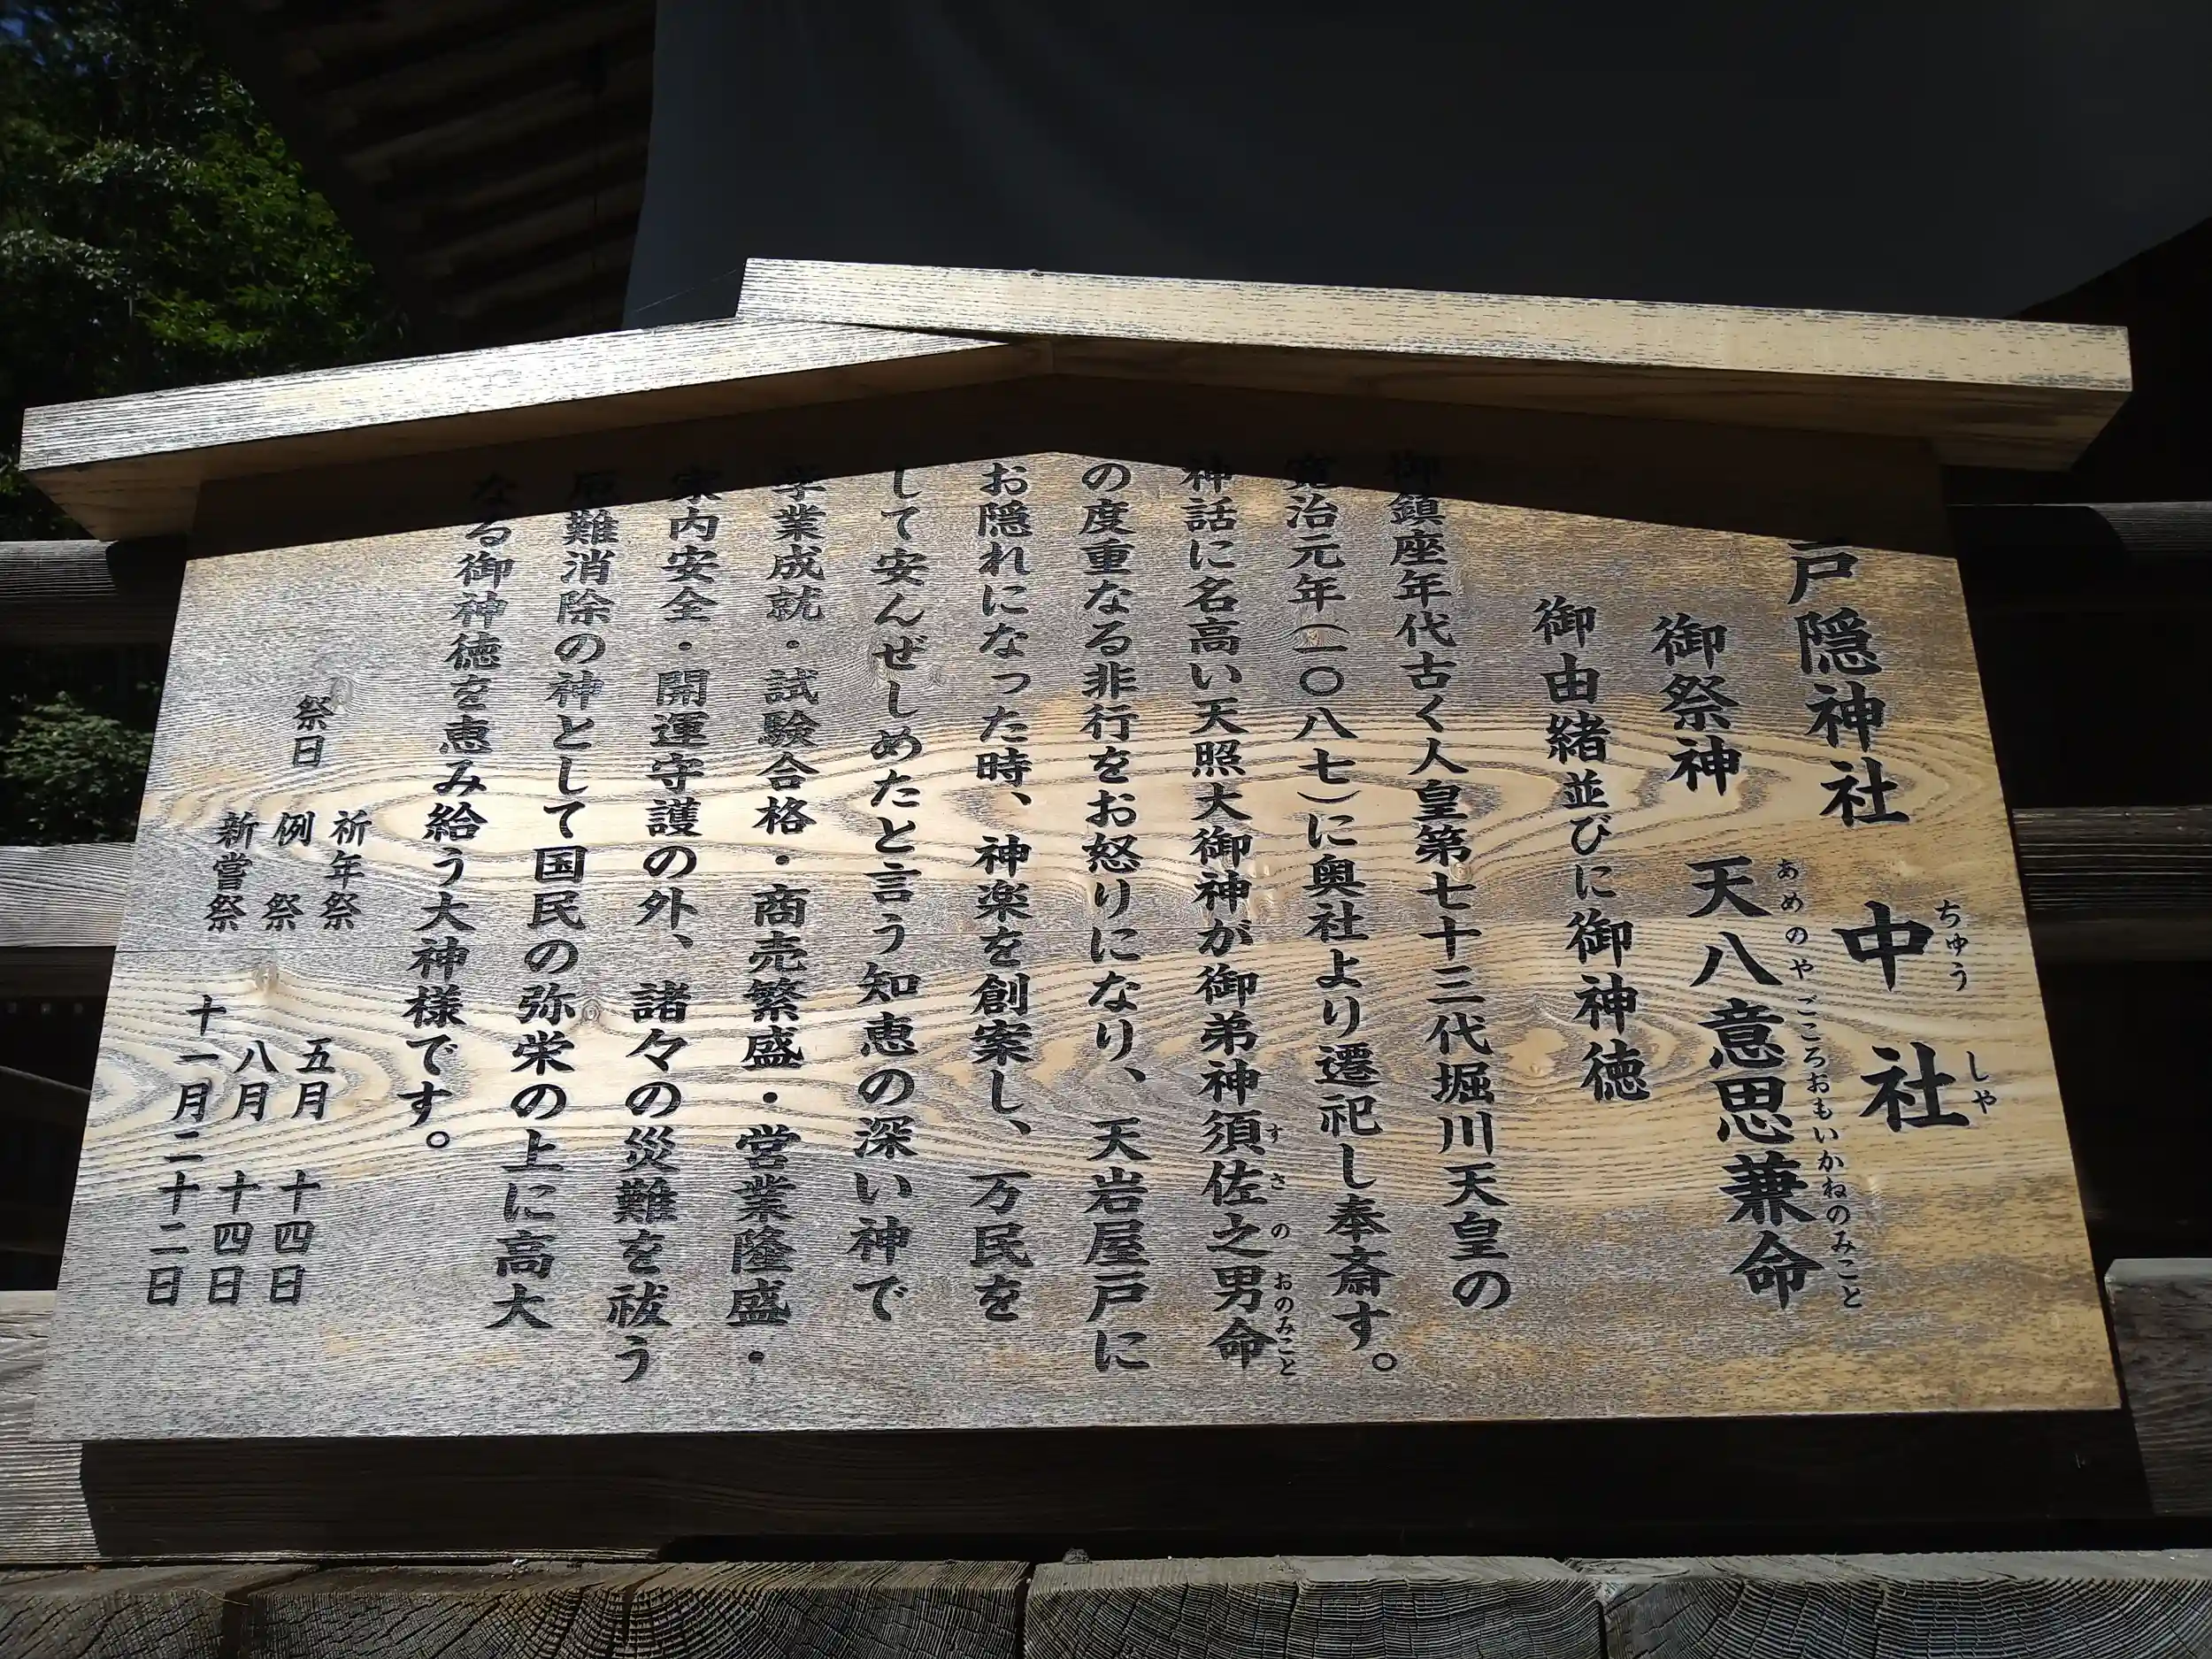 戸隠神社 中社
ちゅう しや
御祭神 天八意思兼命
あめのやごころおもいかねのみこと
御由緒並びに御神徳
御鎮座年代古く人皇第七十三代堀川天皇の
寛治元年(一〇八七)に奥社より遷祀し奉斎す。
神話に名高い天照大御神が御弟神須佐之男命
すさのおのみこと
の度重なる非行をお怒りになり、天岩屋戸に
お隠れになった時、神楽を創案し、万民を
して安んぜしめたと言う知恵の深い神で
学業成就・試験合格・商売繁盛・営業隆盛・
家内安全・開運守護の外、諸々の災難を祓う
厄難消除の神として国民の弥栄の上に高大
なる御神徳を恵み給う大神様です。
祭日
祈年祭 五月 十四日
例祭 八月 十四日
新嘗祭 十一月二十二日